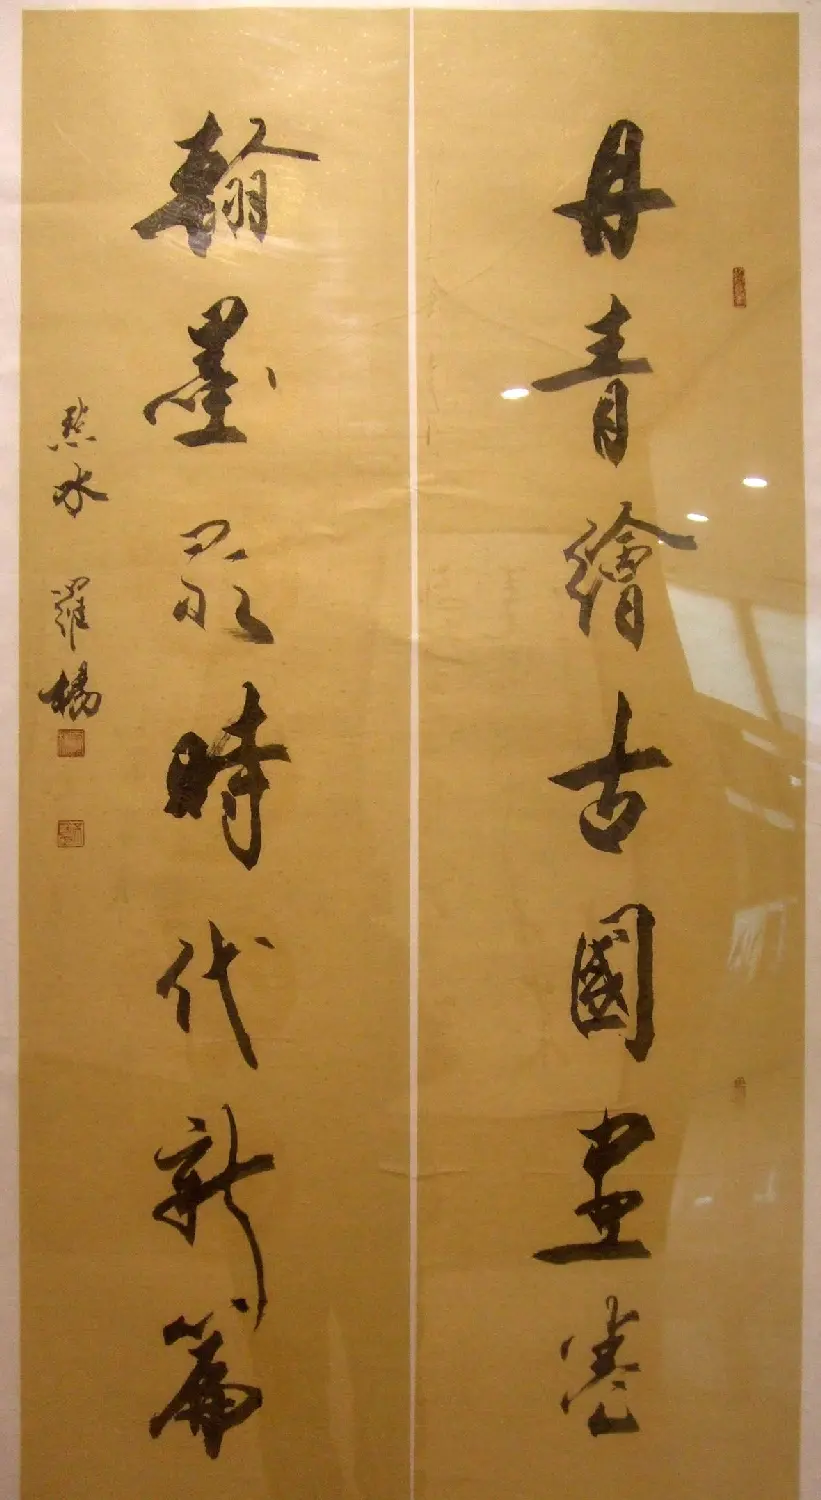 丹青繪古國畫卷
翰墨時代新篇
點水 羅楊